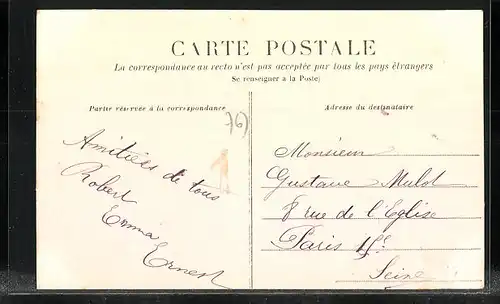 CARTE POSTALE
La correspondance au recto n'est pas acceptée par tous les pays étrangers
(Se renseigner à la Poste)
Partie réservée à la correspondance
Adresse du destinataire
76)
Amitiés de tous
Robert
Emma
Ernest
Monsieur
Gustave Mulot
8 rue de l'Eglise
Paris 15e
Seine